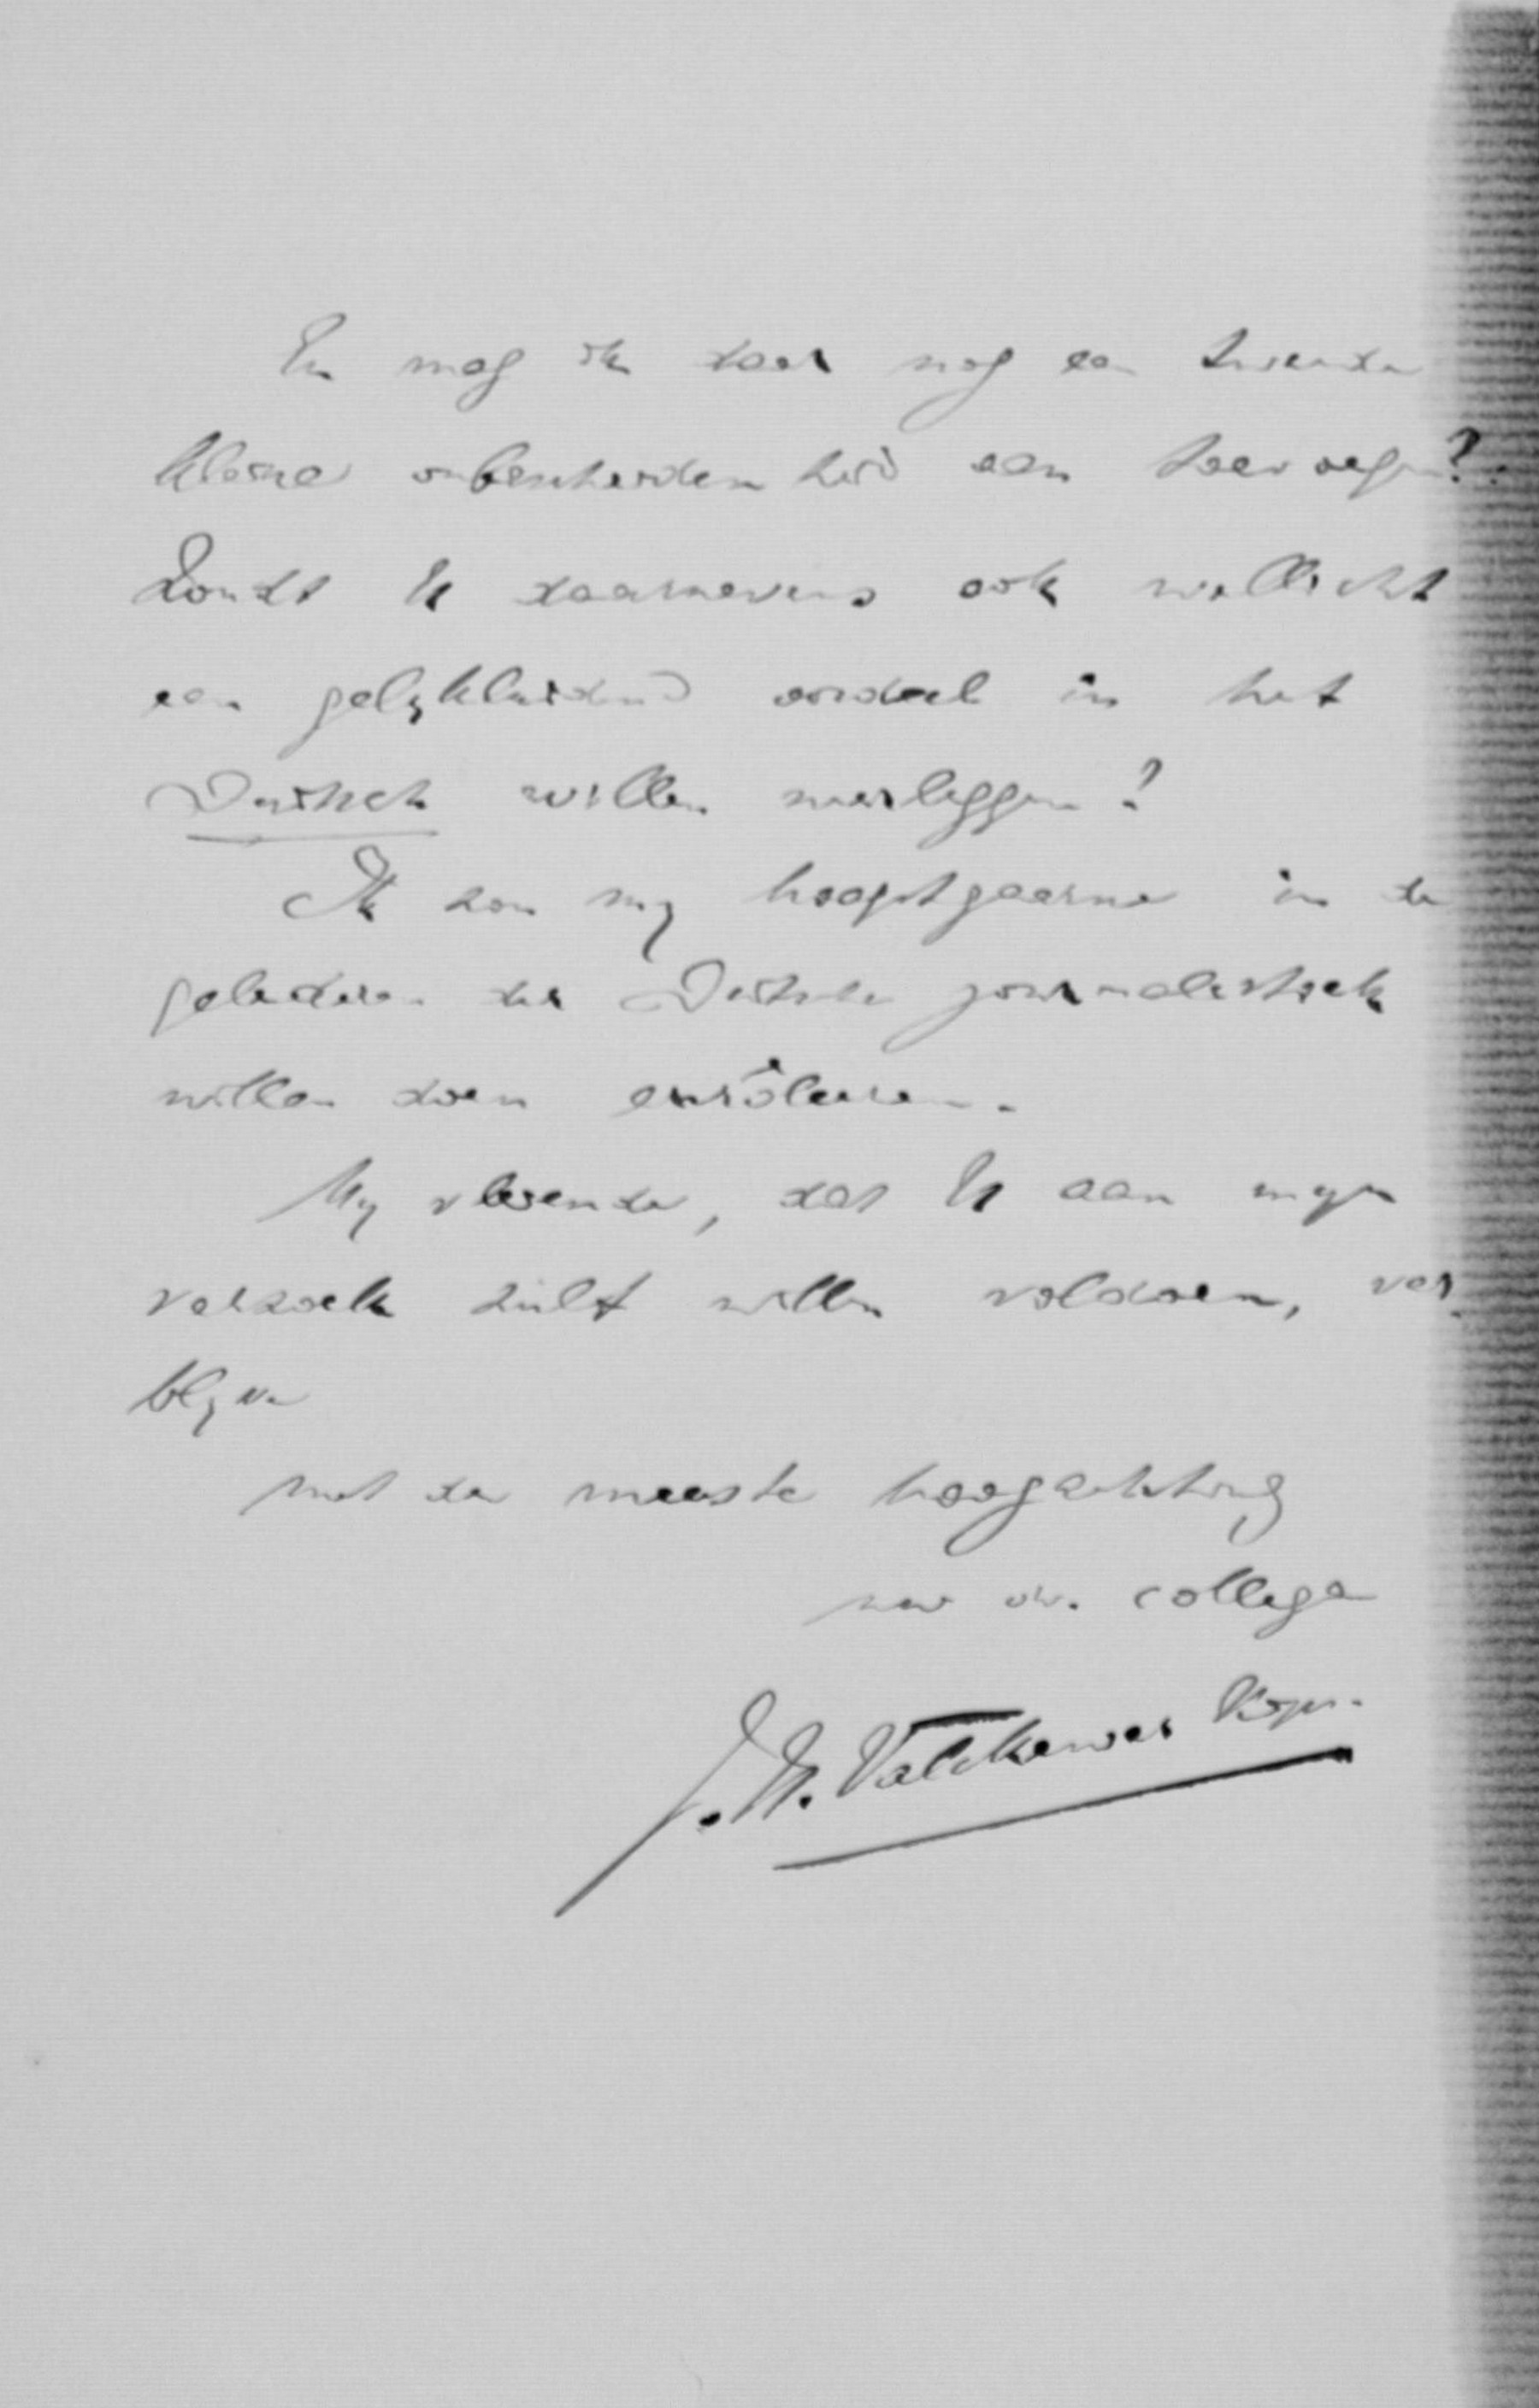 En mag ik daar nog een tweede
kleine onbescheidenheid aan toevoegen?
Zoudt U daarnevens ook wellicht
een gelijkluidend oordeel in het
Duitsch willen neerleggen?
Ik zou mij hoogstgaarne in de
gelederen der Duitsche journalistiek
willen doen enrôleeren.
Mij vleiende, dat U aan mijn
verzoek zult willen voldoen, ver-
blijve
met de meeste hoogachting
uw dw. collega
J. H. Valckenier Kips.